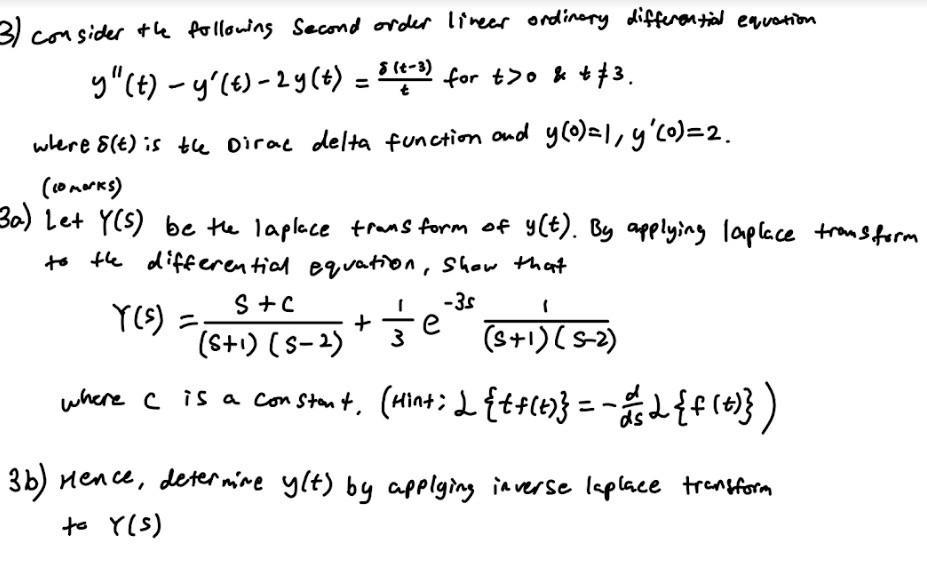 3) consider the following Second order linear ordinary differential equation
y''(t) - y'(t) - 2y(t) = δ(t-3)/t for t>0 & t≠3.
where δ(t) is the Dirac delta function and y(0)=1, y'(0)=2.
(10 marks)
3a) Let Y(S) be the laplace transform of y(t). By applying laplace transform
to the differential equation, show that
Y(S) = S+C/(S+1)(S-2) + 1/3 e^-3s 1/(S+1)(S-2)
where C is a constant. (Hint: L{tf(t)} = -d/ds L{f(t)})
3b) Hence, determine y(t) by applying inverse laplace transform
to Y(S)